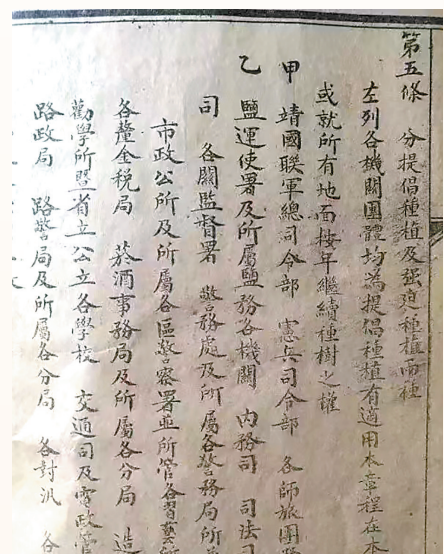 第五條　分提倡種植及强迫種植兩種
左列各機關團體均為提倡種植有適用本章程在本
或就所有地面按年繼續種樹之權
甲　靖國聯軍總司令部　憲兵司令部　各師旅團
乙　鹽運使署及所屬鹽務各機關　內務司　司法司
司　各關監督署　警務處及所屬各警務局所
市政公所及所屬各區警察署並所管各習藝所
各釐金稅局　菸酒事務局及所屬各分局　造
勸學所暨省立公立各學校　交通司及電政管
路政局　路警局及所屬各分局　各對汛　各